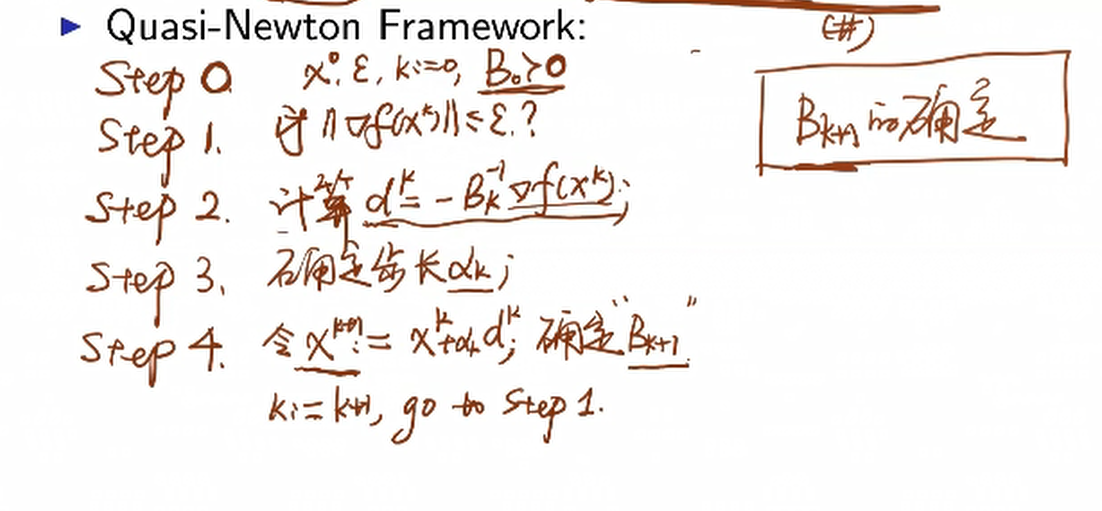 ▶ Quasi-Newton Framework:
(#)
Step 0. x⁰, ε, k:=0, B₀≻0
B_{k+1}的确定
Step 1. 若 ‖∇f(x^k)‖≤ε.?
Step 2. 计算 d^k = -B_k^{-1}∇f(x^k);
Step 3. 确定步长 α_k;
Step 4. 令 x^{k+1} := x^k+α_k d^k; 确定“B_{k+1}”.
k:=k+1, go to Step 1.